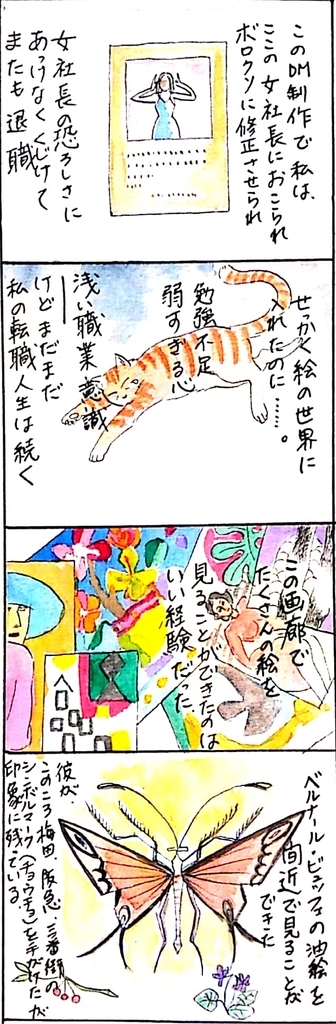 このDM制作で私は、
ここの女社長におこられ
ボロクソに修正させられ
女社長の恐ろしさに
あっけなくくじけて
またも退職
せっかく絵の世界に
入れたのに……。
勉強不足
弱すぎる心
浅い職業意識
けどまだまだ
私の転職人生は続く
この画廊で
たくさんの絵を
見ることができたのは
いい経験だった。
ベルナール・ビュッフェの油絵を
間近で見ることが
できた
彼が、
このころ梅田、阪急三番街の
シンボルマーク(チョウチョ)を手がけたが
印象に残っている。